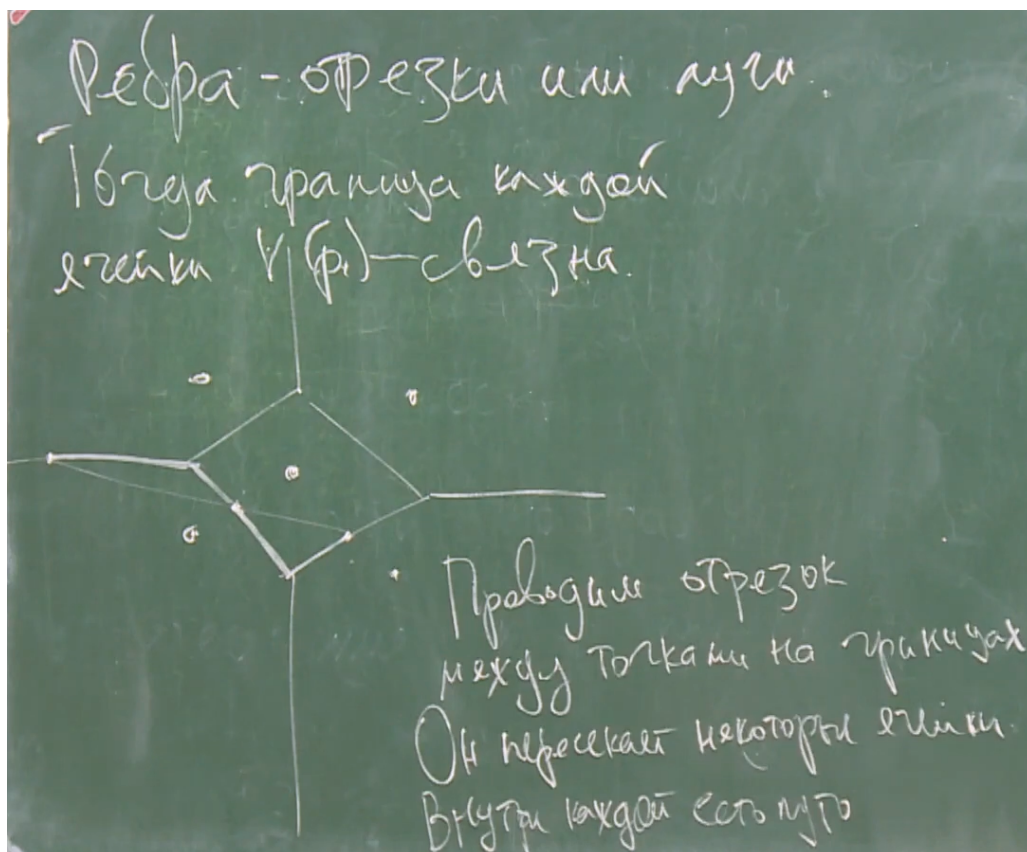 Рёбра - отрезки или лучи.
Тогда граница каждой
ячейки V(pᵢ) — связна.
Проводим отрезок
между точками на границах
Он пересекает некоторые ячейки.
Внутри каждой есть путь